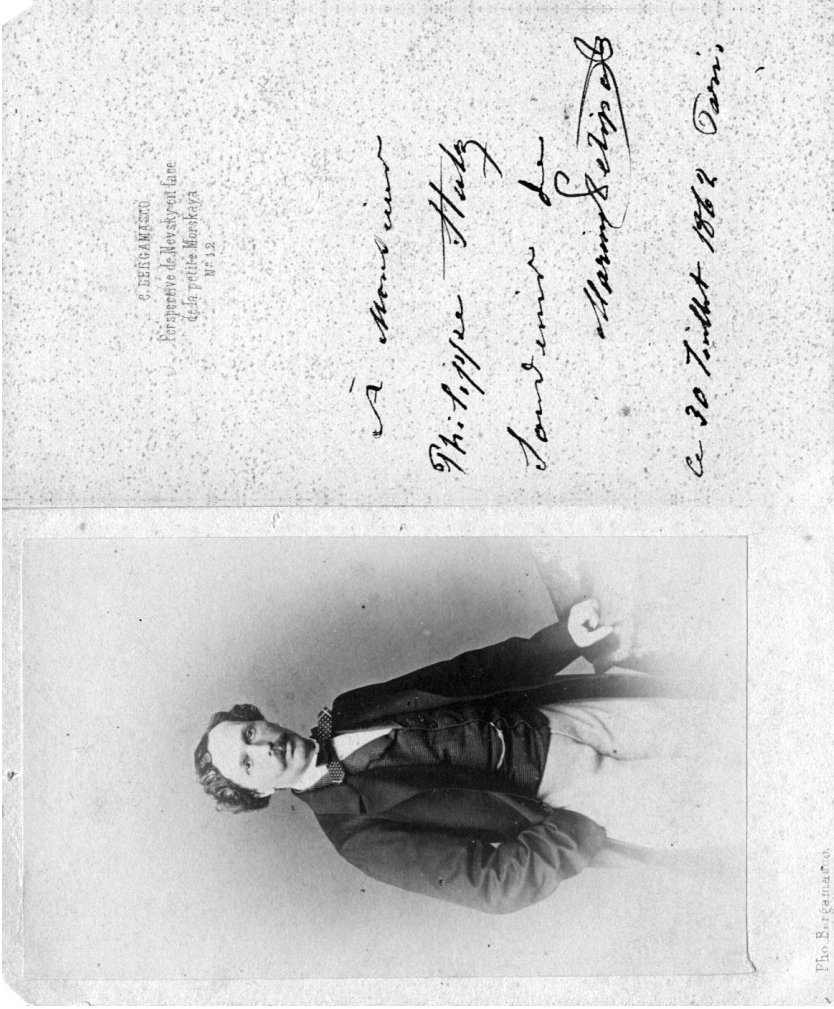 C. BERGAMASCO
Perspective de Nevsky en face
de la petite Morskaya
Nº 12
À Monsieur
Philippe
Souvenir de
Marius Petipa
Ce 30 Juillet 1862 Paris.
Pho Bergamasco.